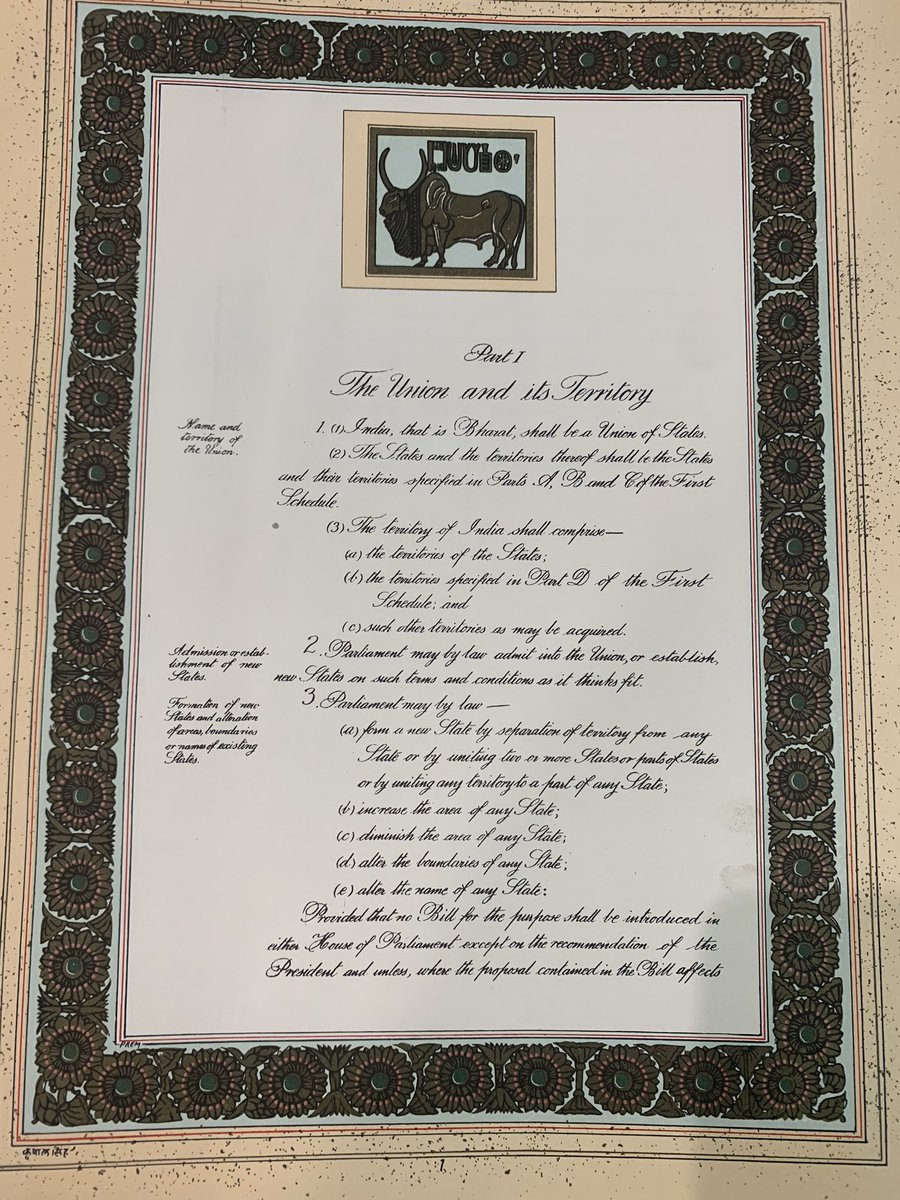 Part I
The Union and its Territory
Name and
territory of
the Union.
1. (1) India, that is Bharat, shall be a Union of States.
(2) The States and the territories thereof shall be the States
and their territories specified in Parts A, B and C of the First
Schedule.
(3) The territory of India shall comprise—
(a) the territories of the States;
(b) the territories specified in Part D of the First
Schedule; and
(c) such other territories as may be acquired.
Admission or estab-
lishment of new
States.
2. Parliament may by law admit into the Union, or establish,
new States on such terms and conditions as it thinks fit.
Formation of new
States and alteration
of areas, boundaries
or names of existing
States.
3. Parliament may by law —
(a) form a new State by separation of territory from any
State or by uniting two or more States or parts of States
or by uniting any territory to a part of any State;
(b) increase the area of any State;
(c) diminish the area of any State;
(d) alter the boundaries of any State;
(e) alter the name of any State:
Provided that no Bill for the purpose shall be introduced in
either House of Parliament except on the recommendation of the
President and unless, where the proposal contained in the Bill affects
PREM
1